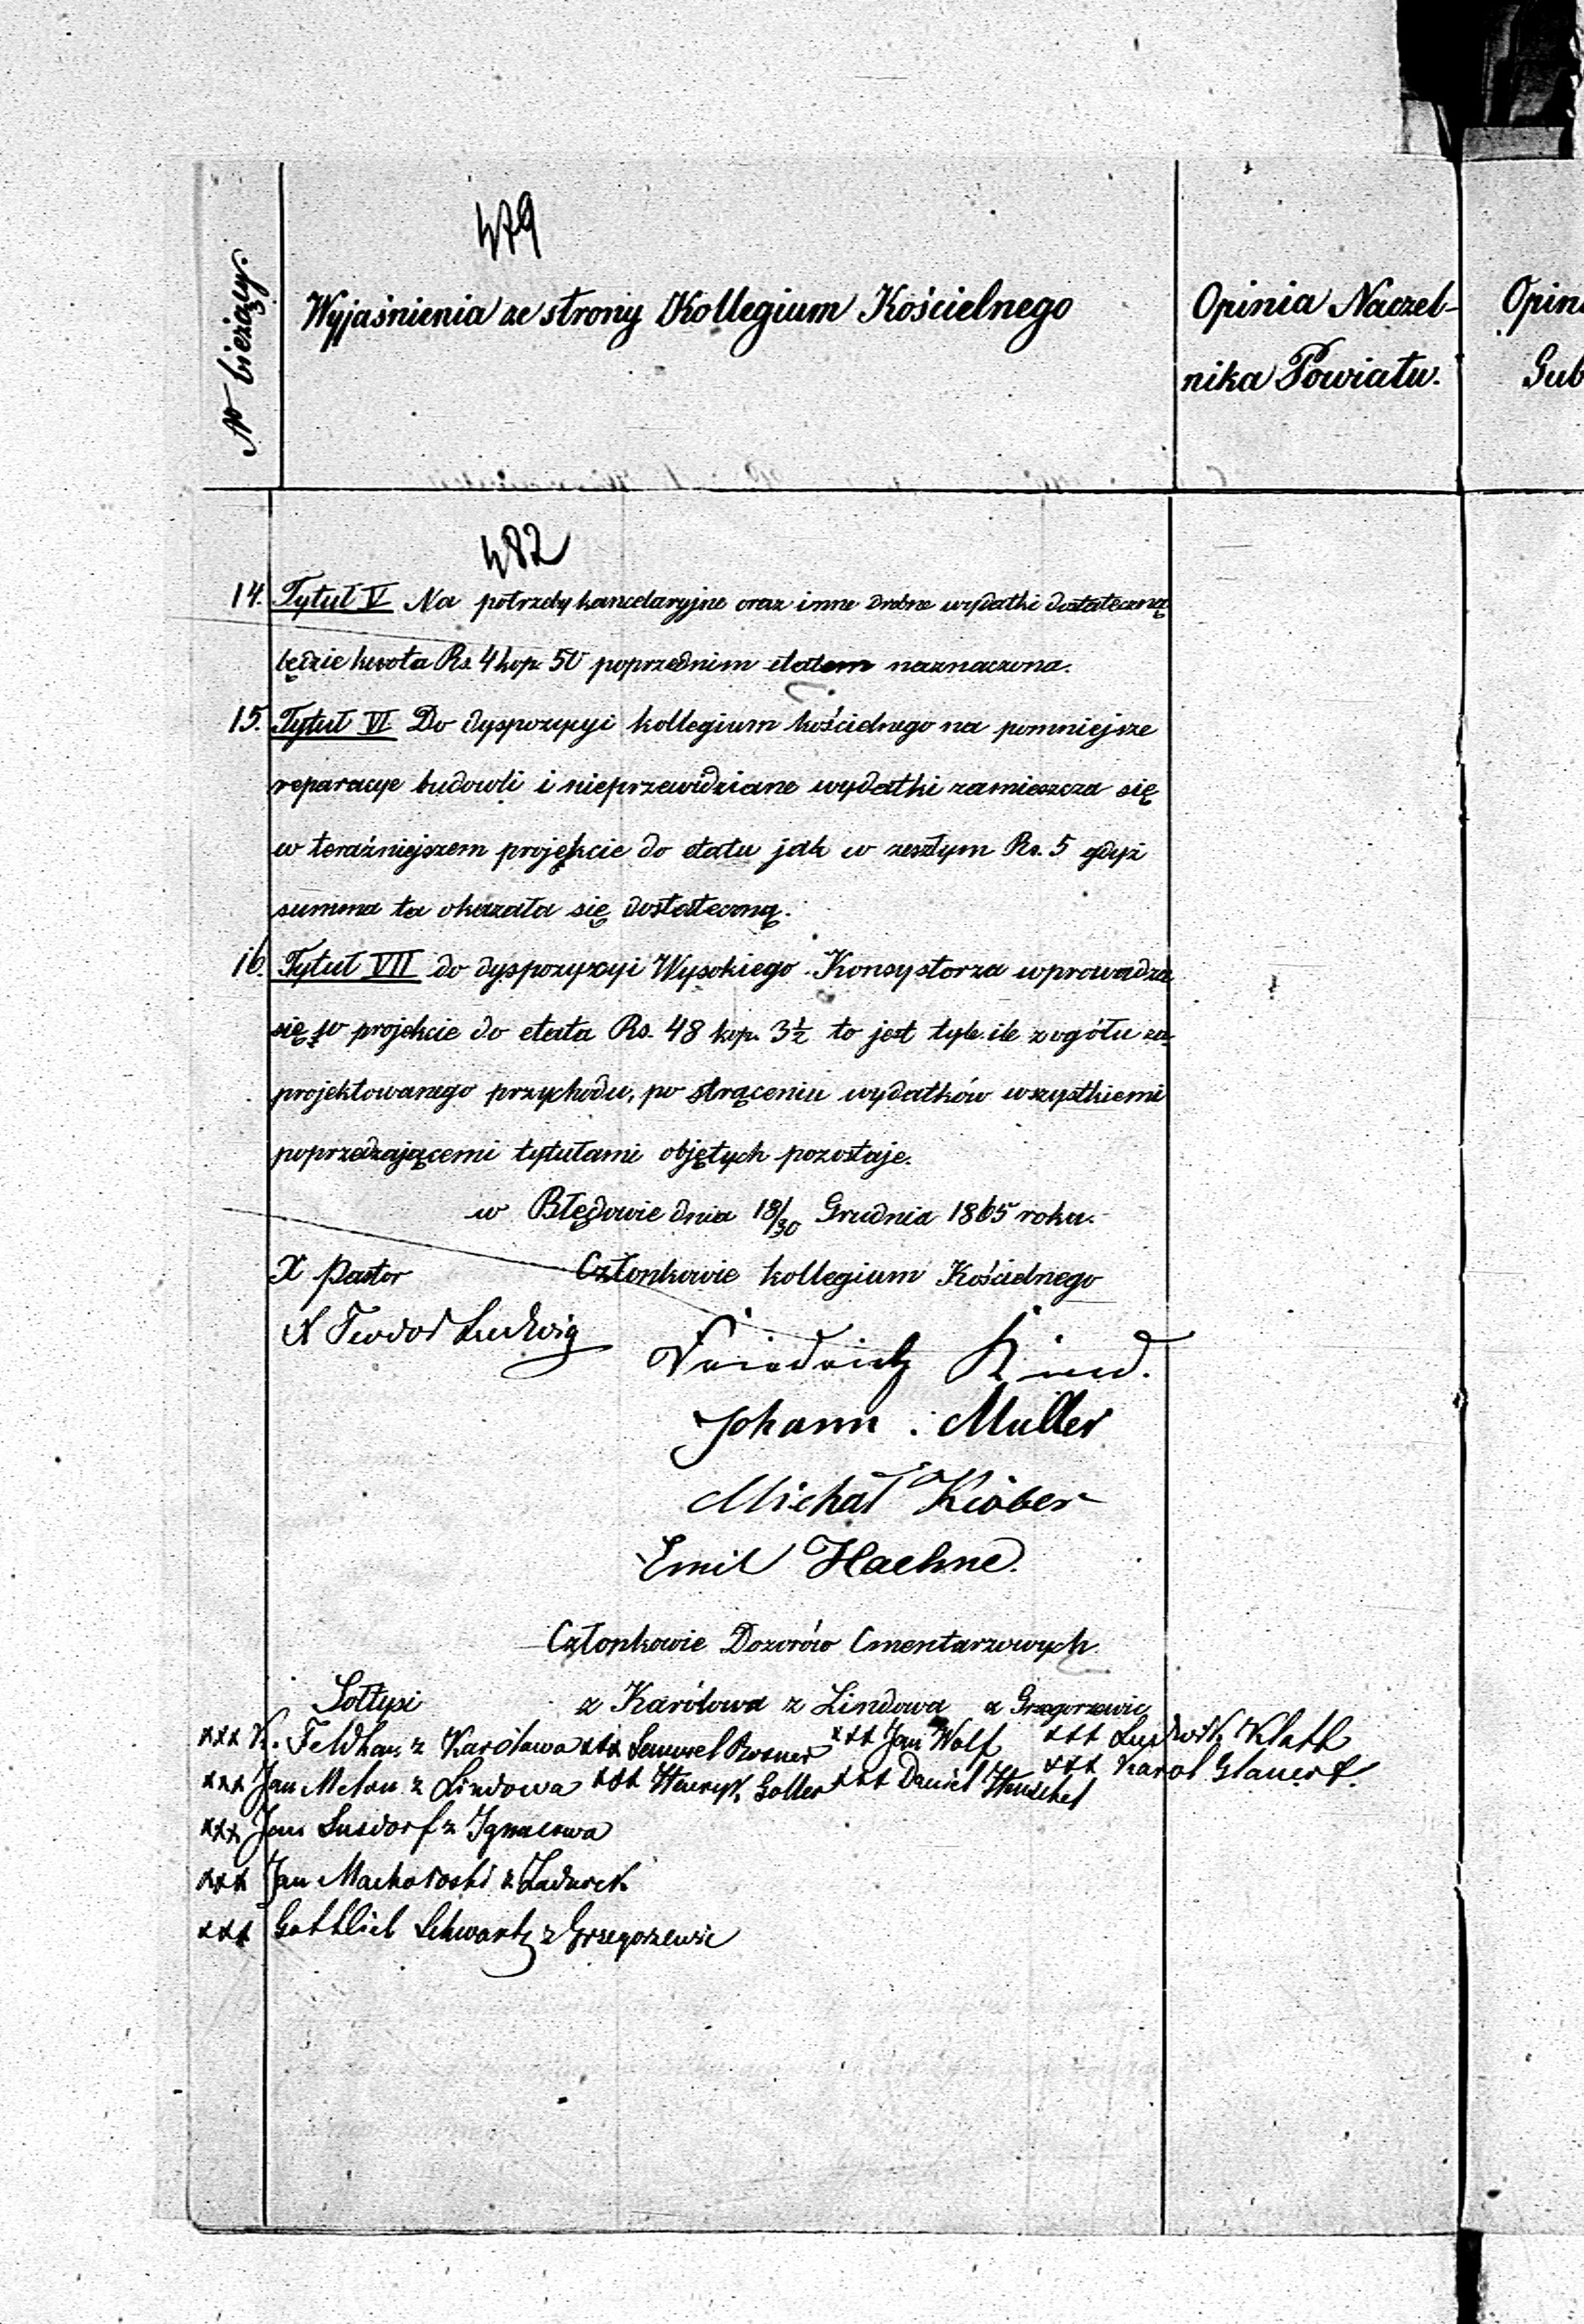 479
No bieżący.
Wyjaśnienia ze strony Kollegium Kościelnego
Opinia Naczel-
nika Powiatu.
Opin
Gub
482
14. Tytuł V Na potrzeby kancelaryjne oraz inne drobne wydatki dostateczną
będzie kwota Rs. 4 kop. 50 poprzednim etatem naznaczona.
15. Tytuł VI Do dyspozycyi kollegium kościelnego na pomniejsze
reparacye budowli i nieprzewidziane wydatki zamieszcza się
w teraźniejszem projekcie do etatu jak w zeszłym Rs. 5 gdyż
summa ta okazała się dostateczną.
16. Tytuł VII do dyspozycyi Wysokiego Konsystorza wprowadza
się w projekcie do etata Rs. 48 kop. 3½ to jest tyle ile z ogółu za
projektowanego przychodu, po strąceniu wydatków wszystkiemi
poprzedzającemi tytułami objętych pozostaje.
w Błędowie dnia 18/30 Grudnia 1865 roku.
X Pastor Członkowie kollegium Kościelnego
X Teodor Ludwig
Friedrich Kind.
Johann Muller
Michał Kiober
Emil Haehne.
Członkowie Dozorów Cmentarzowych
Sołtysi z Karólowa z Lindowa z Grzegorzewic
xxx K. Feldhan z Karólowa xxx Samuel Rosner xxx Jan Wolf xxx Ludwik Klath
xxx Jan Melon z Lindowa xxx Henryk Goller xxx Daniel Henschel xxx Karol Glauert.
xxx Jan Lusdorf z Ignacowa
xxx Jan
xxx Gottlieb Schwartz z Grzegorzewic